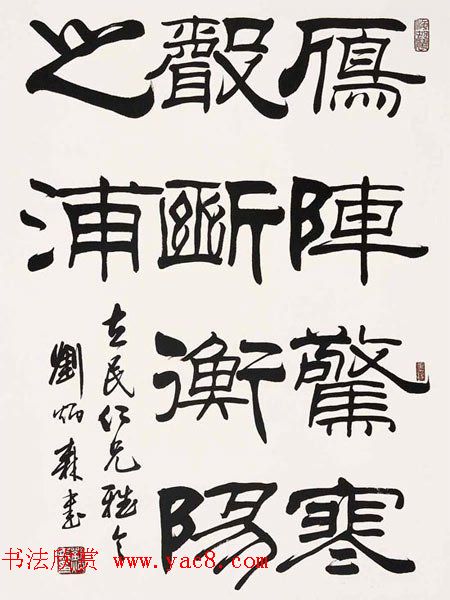 鴈陣驚寒
聲斷衡陽
之浦
立民仁兄雅
劉炳森書
书法欣赏 www.yac8.com